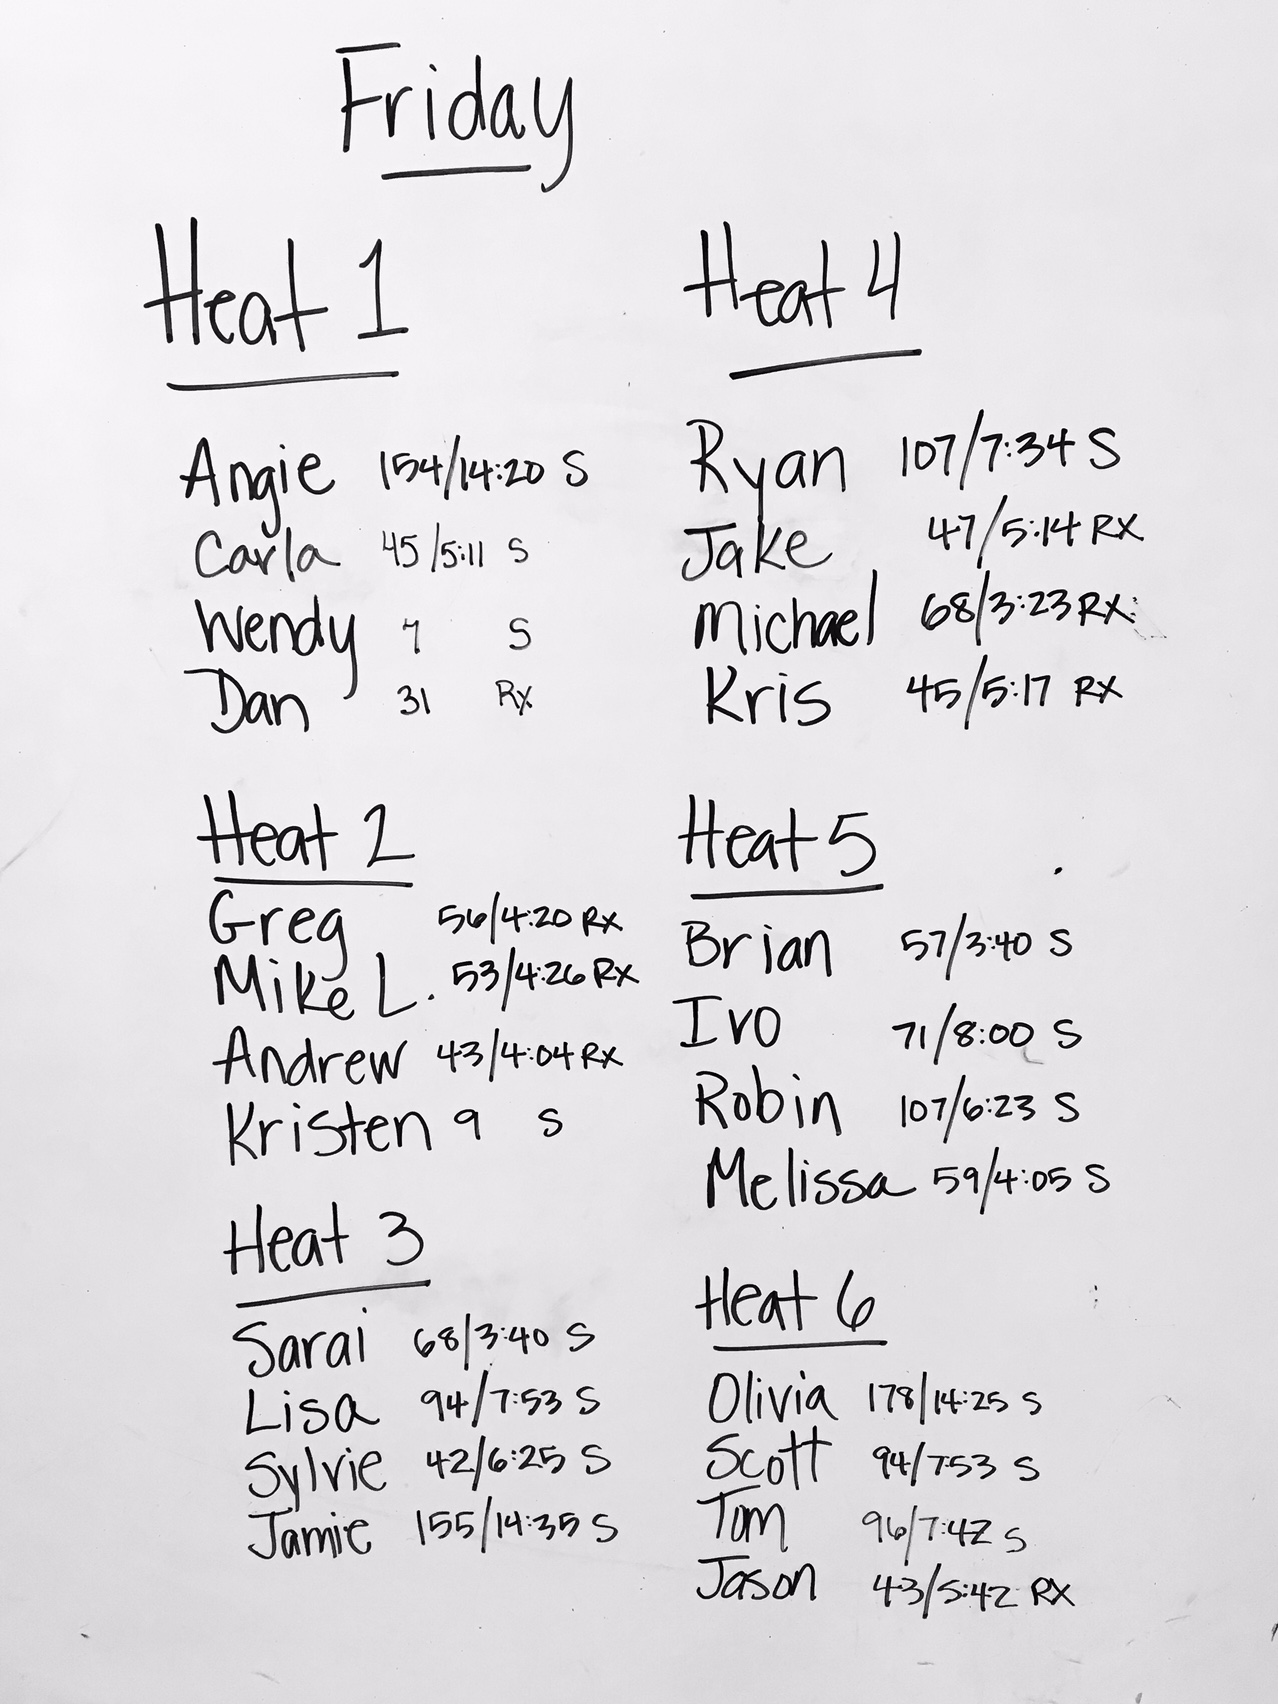 Friday
Heat 1
Angie 154/14:20 S
Carla 45/5:11 S
Wendy 7 S
Dan 31 Rx
Heat 2
Greg 56/4:20 Rx
Mike L. 53/4:26 Rx
Andrew 43/4:04 Rx
Kristen 9 S
Heat 3
Sarai 68/3:40 S
Lisa 94/7:53 S
Sylvie 42/6:25 S
Jamie 155/14:35 S
Heat 4
Ryan 107/7:34 S
Jake 47/5:14 RX
Michael 68/3:23 RX
Kris 45/5:17 RX
Heat 5
Brian 57/3:40 S
Ivo 71/8:00 S
Robin 107/6:23 S
Melissa 59/4:05 S
Heat 6
Olivia 178/14:25 S
Scott 94/753 S
Tom 96/7:42 S
Jason 43/5:42 RX